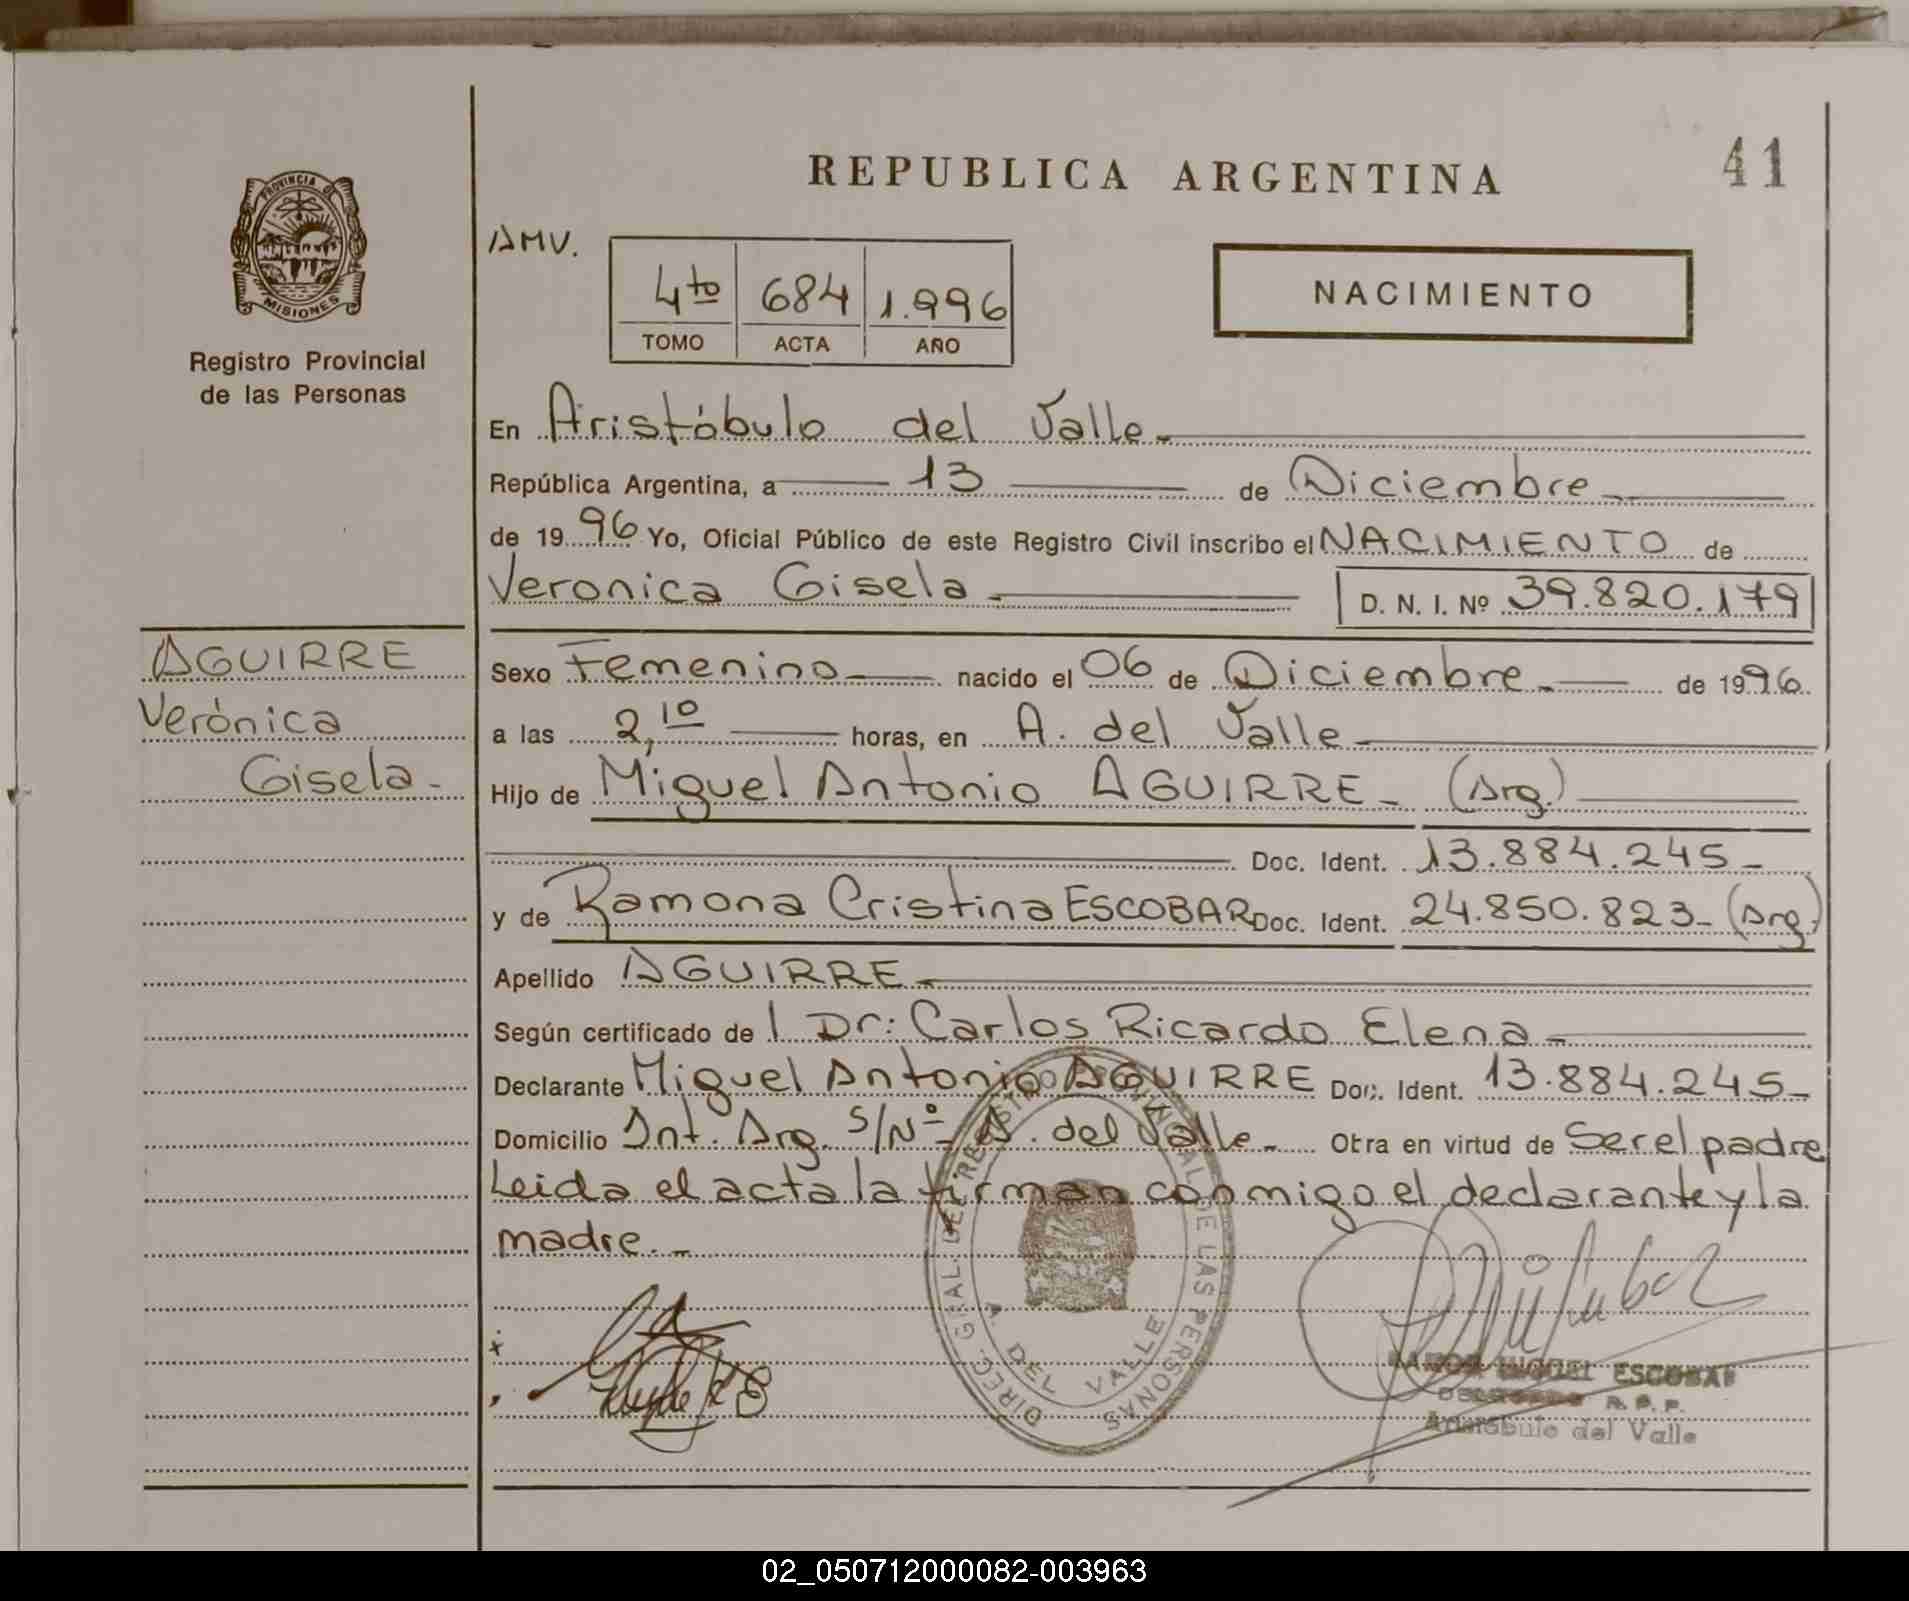 41
REPUBLICA ARGENTINA
PROVINCIA D
MISIONES
Registro Provincial
de las Personas
AMV.
4to 684 1.996
TOMO ACTA AÑO
NACIMIENTO
En Aristóbulo del Valle.
República Argentina, a 13 de Diciembre
de 1996 Yo, Oficial Público de este Registro Civil inscribo el NACIMIENTO de
Veronica Gisela D. N. I. Nº 39.820.179
AGUIRRE
Verónica
Gisela.
Sexo Femenino nacido el 06 de Diciembre de 1996.
a las 2,10 horas, en A. del Valle
Hijo de Miguel Antonio AGUIRRE (Arg.)
Doc. Ident. 13.884.245
y de Ramona Cristina ESCOBAR Doc. Ident. 24.850.823 (Arg.)
Apellido AGUIRRE
Según certificado de l Dr: Carlos Ricardo Elena
Declarante Miguel Antonio AGUIRRE Doc. Ident. 13.884.245
Domicilio Int. Arg. S/Nº A. del Valle Obra en virtud de Ser el padre
Leida el acta la firman conmigo el declarante y la
madre.
DIREC. GRAL. DEL REGISTRO PROVINCIAL DE LAS PERSONAS
A. DEL VALLE
RAMON MIGUEL ESCOBAR
DELEGADO R. P. P.
Aristóbulo del Valle
02_050712000082-003963